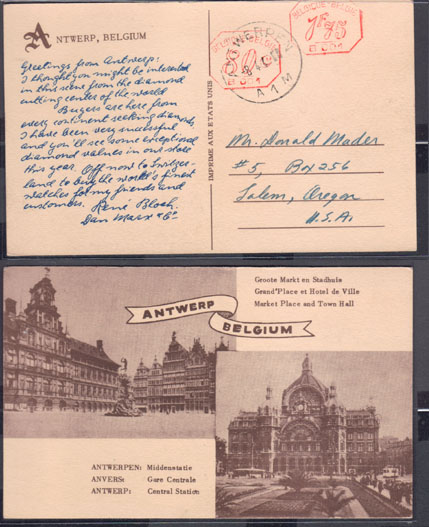 ANTWERP, BELGIUM
Greetings from Antwerp:
I thought you might be interested
in this scene from the diamond
cutting center of the world
Buyers are here from
every continent seeking diamonds,
I have been very successful
and you'll see some exceptional
diamond values in our store
this year. Off now to Switzer-
land to buy the world's finest
watches for my friends and
customers. René Bloch
Dan Marx & Co
IMPRIME AUX ETATS UNIS
BELGIQUE-BELGIE
BELGIQUE-BELGIE
ANTWERPEN
A 1 M
Mr. Donald Mader
#5, Box 256
Salem, Oregon
U.S.A.
Groote Markt en Stadhuis
Grand'Place et Hotel de Ville
Market Place and Town Hall
ANTWERP
BELGIUM
ANTWERPEN: Middenstatie
ANVERS: Gare Centrale
ANTWERP: Central Station